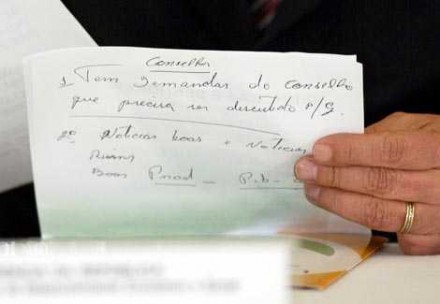 Conselho
1 Tem Demandas do conselho
que precisa ser discutido p/G.
2º Noticias boas e Noticias
Ruins
Boas Prod -